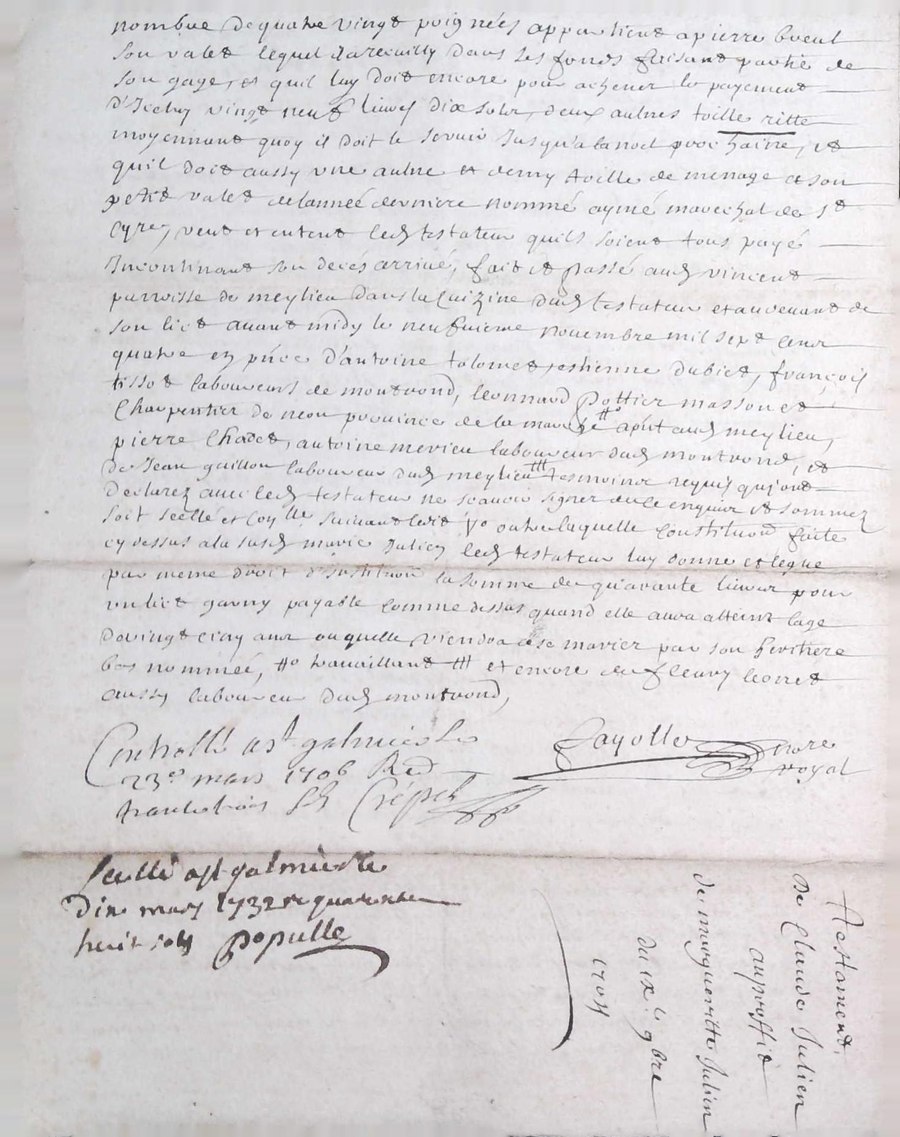 nombre de quatre vingt poignées appartient a pierre
son valet lequel dans ses fonds faisant partie de
son gage, et quil luy doit encore pour achever le payement
d'Icelui vingt neuf livres dix sols, deux autres toille ritte
moyennant quoy il doit le servir Jusqu'a la noel prochaine, et
quil doit aussy une aulne et demy toille de menage a son
petit valet de l'année derniere nommé aymé marechal de st
Cyre, veut et entent led testateur quils soient tous payé
Incontinant son deces arrivé, fait et passé aud vincent
parroisse de meylieu dans la Cuizine dud testateur et au devant de
son lict avant midy le neufvieme novembre mil sept cent
quatre en pñce d'antoine estienne dubict, françois
tissot laboureurs de montrond, leonnard Pottier masson et
Charpentier de province de la marche # aud meylieu,
pierre Chadet, antoine merieu laboureur dud montrond, et
de Jean guillon laboureur dud meylieu ## tesmoins requis qui ont
declarez avec led testateur ne scavoir signer de ce enquis et sommez
soit scellé et suivant outre laquelle Constitution faite
cy dessus a la susd marie Julien led testateur luy donne et legue
par meme droit d'Institution la somme de quarante livres pour
un lict garny payable comme dessus quand elle aura atteint lage
de vingt cinq ans ou quelle viendra a se marier par son heritiere
bas nommée, # travaillant ## et encore de fleury
aussy laboureur dud montrond,
Controllé a st galmier le
23e mars 1706 Red
Crépet
Fayolle nore
royal
Scellé a st galmier le
dix mars 1732 quarante
huit sols Populle
Testament
De Claude Julien
au proffit
de margueritte Julien
du ixe 9bre
1704